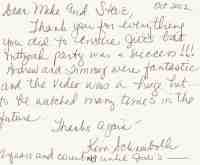 Dear Mike and Steve, Oct 2002
Thank you for everything
you did to ensure Gus's 60th
National party was a success!!!
Andrew and Jimmy were fantastic
and the video was a huge hit
to be watched many times in the
future.
Thanks Again -
Kim
years and counting until